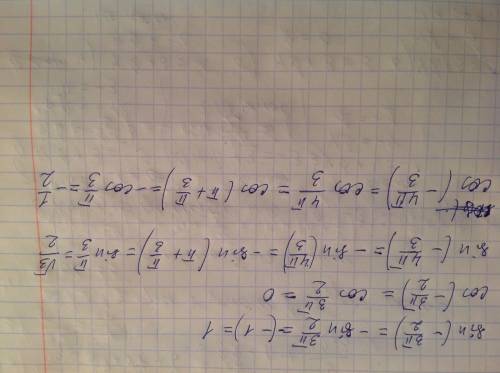 sin (-3π/2) = - sin 3π/2 = -(-1) = 1
cos (-3π/2) = cos 3π/2 = 0
sin (-4π/3) = - sin (4π/3) = - sin (π + π/3) = sin π/3 = √3/2
cos (-4π/3) = cos 4π/3 = cos (π + π/3) = - cos π/3 = - 1/2